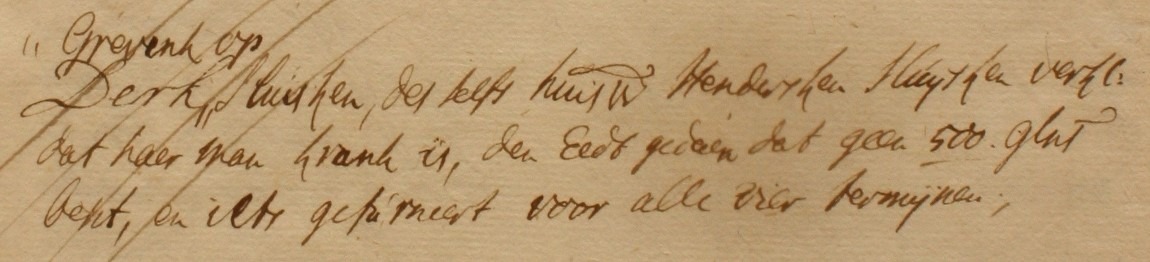 " Grevink op
Derk, Sluisken, des selfs huisvr Henderseken Sluysken verkl:
dat haer man krank is, den Eedt gedaen dat geen 500. glns
besit, en iets gefurneert voor alle vier termijnen.,